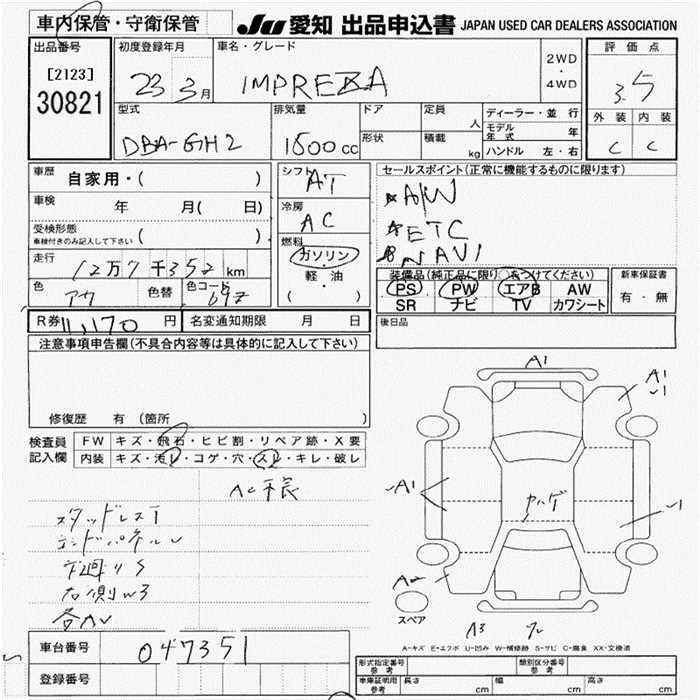 車内保管・守衛保管
JU 愛知 出品申込書 JAPAN USED CAR DEALERS ASSOCIATION
出品番号
[2123]
30821
初度登録年月
23 3月
車名・グレード
IMPREZA
2WD
・
4WD
評価点
3.5
外装 内装
C C
型式
DBA-GH2
排気量
1500 cc
ドア
形状
定員
人
積載
kg
ディーラー・並行
モデル年式 年
ハンドル 左・右
車歴
自家用・( )
車検
年 月( 日)
受検形態
車検付きのみ記入して下さい ( )
走行
12万7千352km
色
アオ
色替
色コード
69Z
シフト
AT
冷房
AC
燃料
ガソリン
・
軽・油
( )
セールスポイント(正常に機能するものに限ります)
A/W
ETC
NAVI
装備品(純正品に限り○をつけてください)
PS PW エアB AW
SR ナビ TV カワシート
新車保証書
有・無
後日品
R券 11,170 円
名変通知期限 月 日
注意事項申告欄(不具合内容等は具体的に記入して下さい)
修復歴 有(箇所 )
検査員
記入欄
FW キズ・飛石・ヒビ割・リペア跡・X要
内装 キズ・汚レ・コゲ・穴・スレ・キレ・破レ
スタッドレス
下廻りS
右側W3
A1
A1
A1
A2
A3
スペア
A-キズ E-エクボ U-凹み W-補修跡 S-サビ C-腐食 XX-交換済
車台番号
047351
登録番号
形式指定番号
参考
類別区分番号
参考
車庫証明用
参考
長さ cm
幅 cm
高さ cm